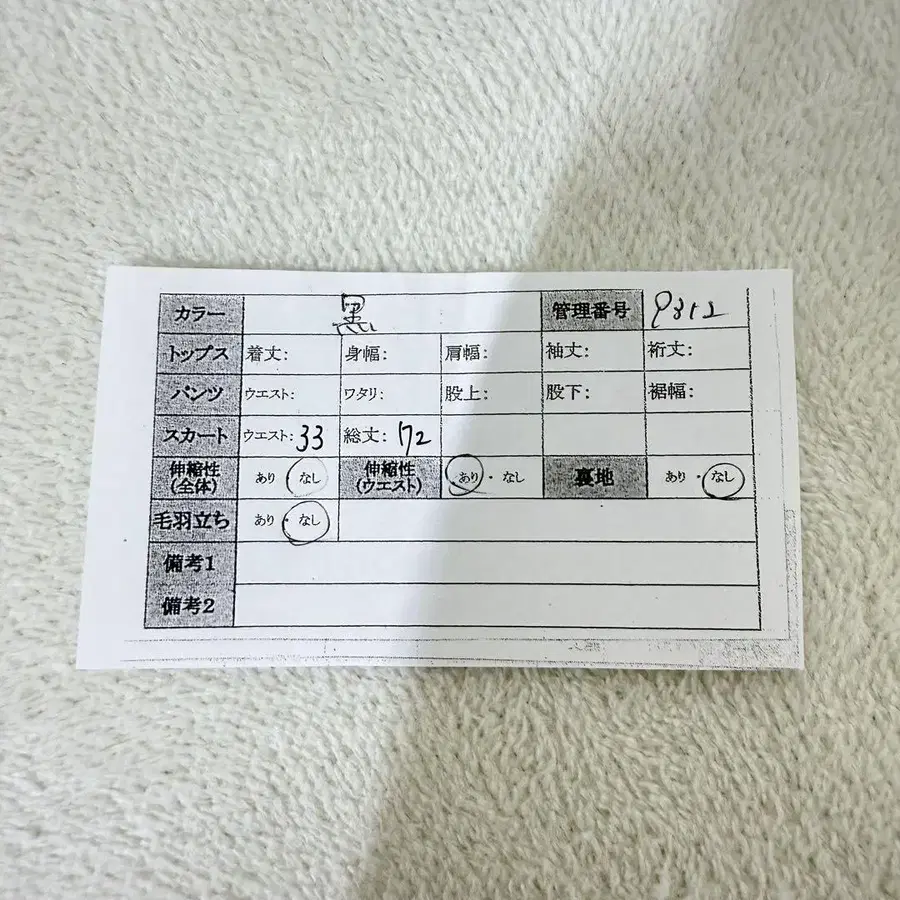 カラー 黒 管理番号 P312
トップス 着丈: 身幅: 肩幅: 袖丈: 裄丈:
パンツ ウエスト: ワタリ: 股上: 股下: 裾幅:
スカート ウエスト: 33 総丈: 72
伸縮性(全体) あり・なし 伸縮性(ウエスト) あり・なし 裏地 あり・なし
毛羽立ち あり・なし
備考1
備考2